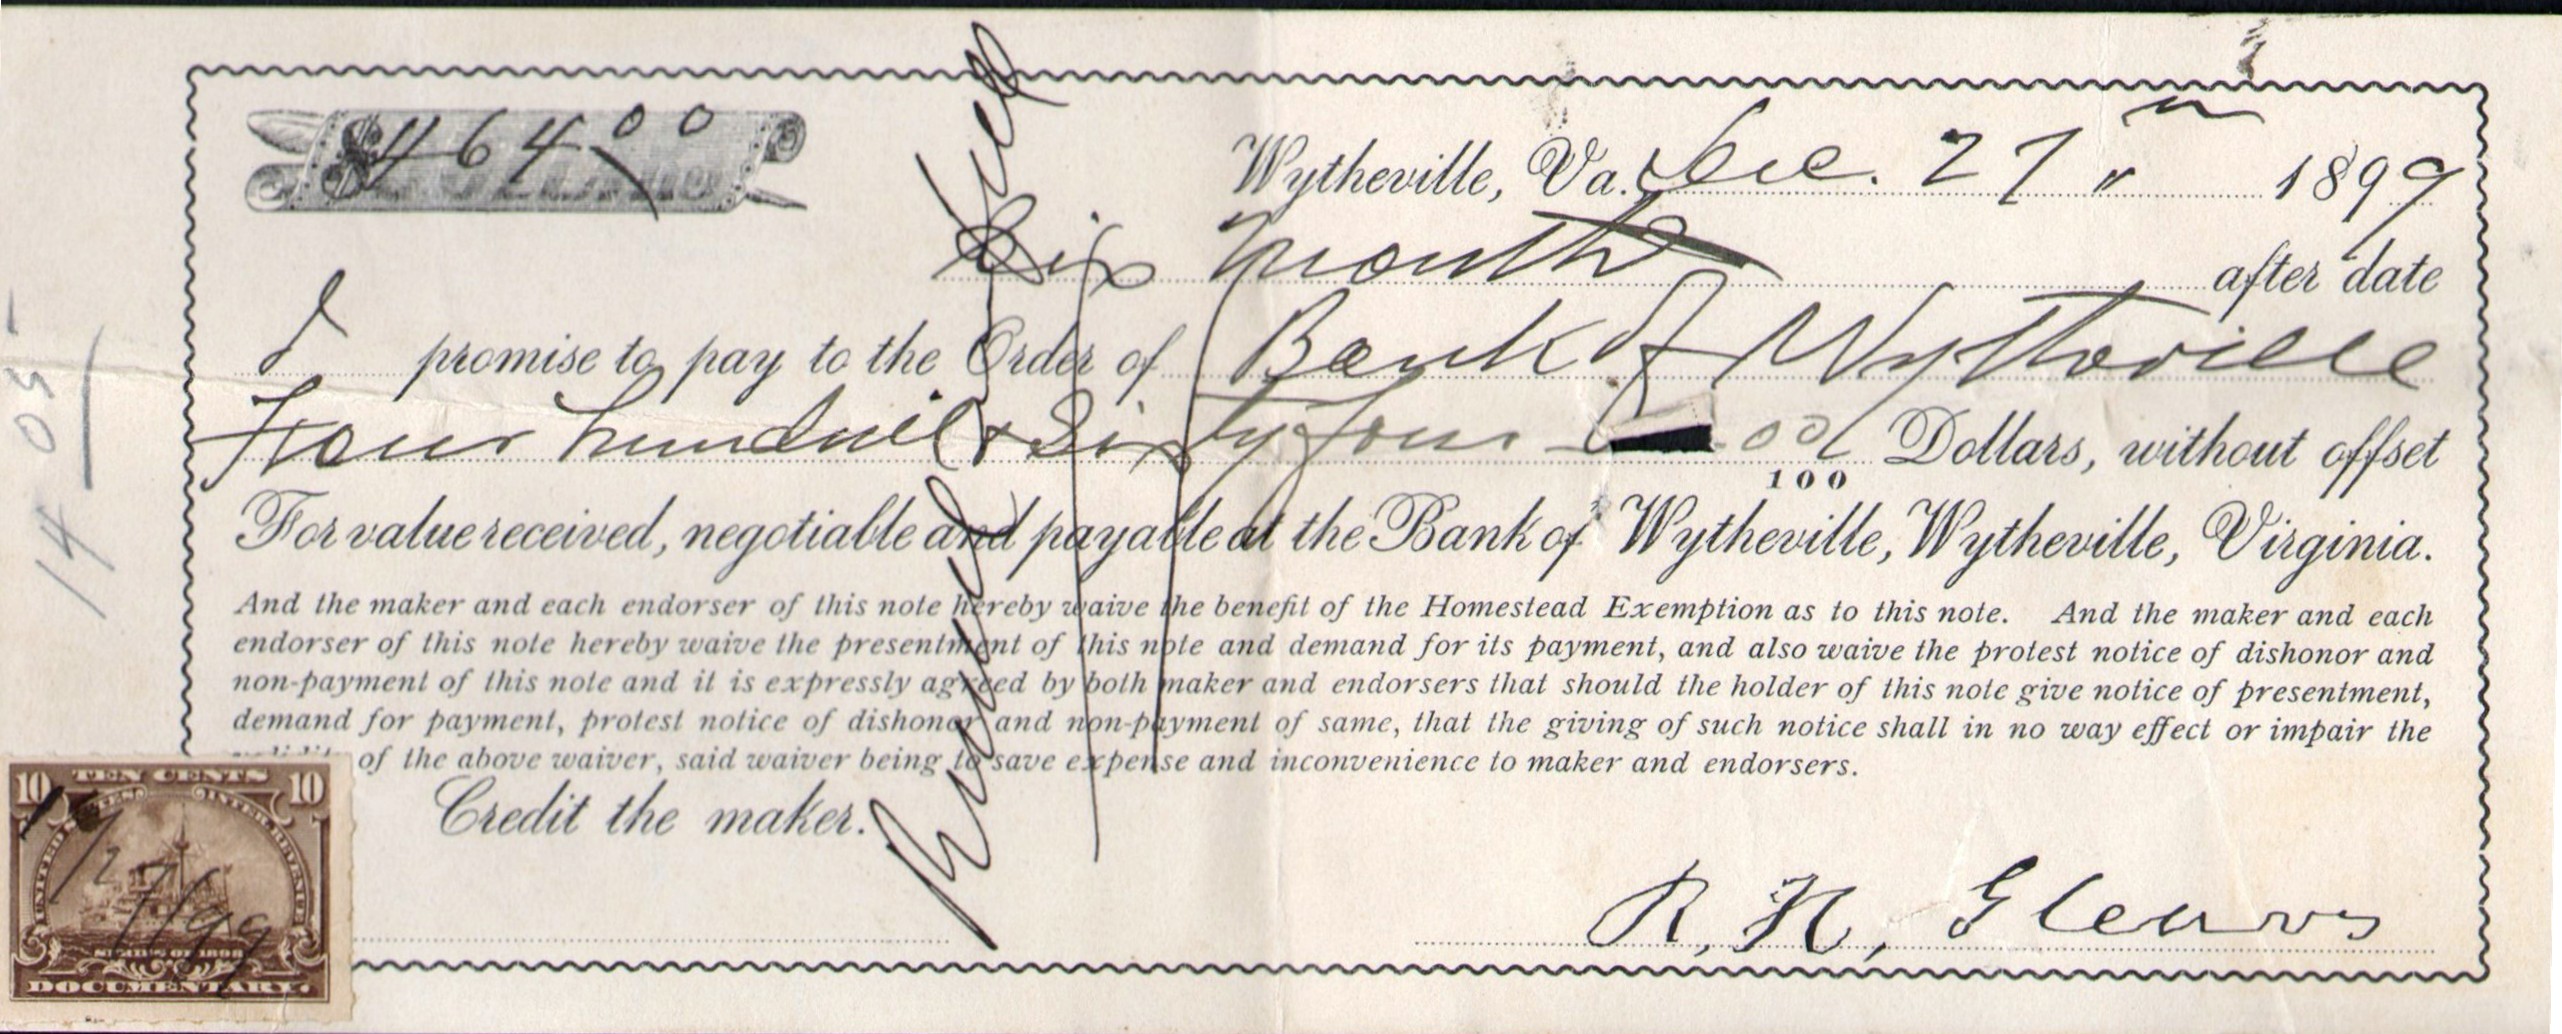 $464 00
Wytheville, Va. Dec. 27" 1899
Six months after date
I promise to pay to the Order of Bank of Wytheville
Four hundred & Sixty four 00/100 Dollars, without offset
For value received, negotiable and payable at the Bank of Wytheville, Wytheville, Virginia.
And the maker and each endorser of this note hereby waive the benefit of the Homestead Exemption as to this note. And the maker and each
endorser of this note hereby waive the presentment of this note and demand for its payment, and also waive the protest notice of dishonor and
non-payment of this note and it is expressly agreed by both maker and endorsers that should the holder of this note give notice of presentment,
demand for payment, protest notice of dishonor and non-payment of same, that the giving of such notice shall in no way effect or impair the
validity of the above waiver, said waiver being to save expense and inconvenience to maker and endorsers.
Credit the maker.
R. H. Gleaves
Renewed
14 05
10 TEN CENTS 10
UNITED STATES INTER. REVENUE
SERIES OF 1898
DOCUMENTARY.
12/27/99